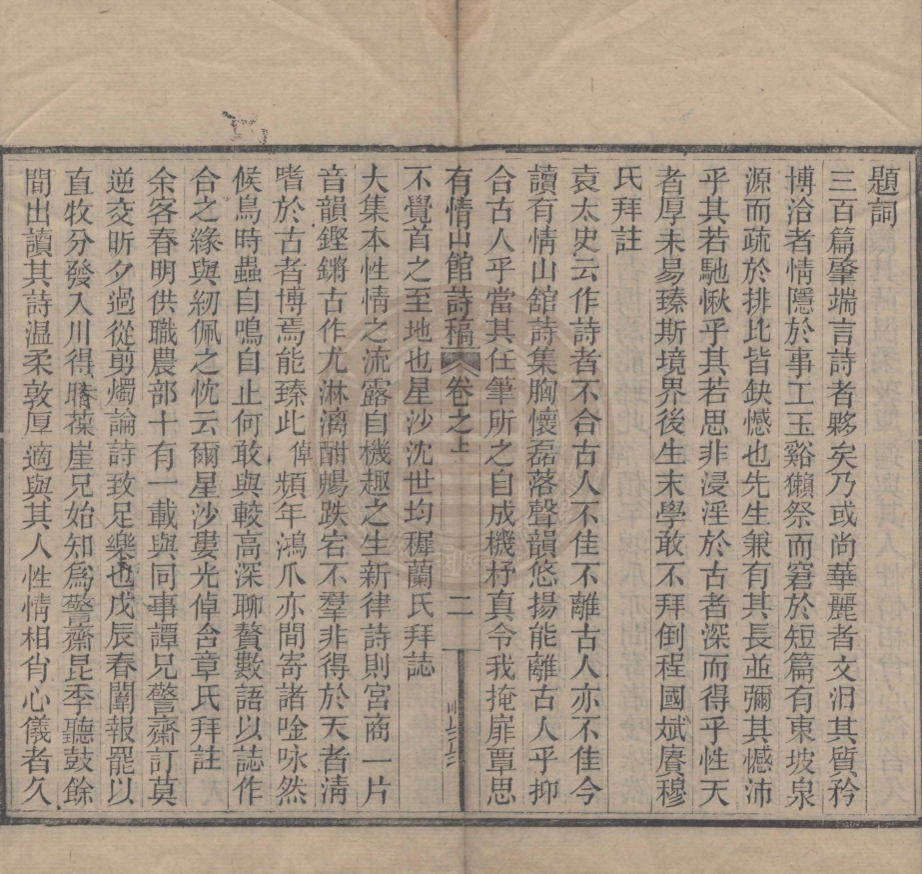 題詞
三百篇肇端言詩者夥矣乃或尚華麗者文汨其質矜
博洽者情隱於事工玉谿獺祭而窘於短篇有東坡泉
源而疏於排比皆缺憾也先生兼有其長並彌其憾沛
乎其若馳愀乎其若思非浸淫於古者深而得乎性天
者厚未易臻斯境界後生末學敢不拜倒程國斌賡穆
氏拜註
袁太史云作詩者不合古人不佳不離古人亦不佳今
讀有情山舘詩集胸懷磊落聲韻悠揚能離古人乎抑
合古人乎當其任筆所之自成機杼真令我掩扉覃思
有情山館詩稿 卷之上 二
不覺首之至地也星沙沈世均穉蘭氏拜誌
大集本性情之流露自機趣之生新律詩則宮商一片
音韻鏗鏘古作尤淋漓酣鬯跌宕不羣非得於天者淸
嗜於古者博焉能臻此倬頻年鴻爪亦間寄諸唫咏然
候鳥時蟲自鳴自止何敢與較高深聊贅數語以誌作
合之緣與紉佩之忱云爾星沙婁光倬含章氏拜註
余客春明供職農部十有一載與同事譚兄警齋訂莫
逆交昕夕過從剪燭論詩致足樂也戊辰春闈報罷以
直牧分發入川得晤葆崖兄始知為警齋昆季聽鼓餘
間出讀其詩溫柔敦厚適與其人性情相肖心儀者久